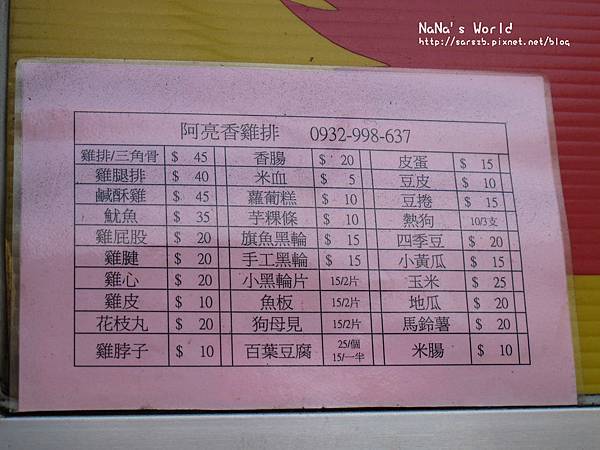 NaNa's World
http://sarszb.pixnet.net/blog
阿亮香雞排 0932-998-637
雞排/三角骨 $ 45 香腸 $ 20 皮蛋 $ 15
雞腿排 $ 40 米血 $ 5 豆皮 $ 10
鹹酥雞 $ 45 蘿蔔糕 $ 10 豆捲 $ 15
魷魚 $ 35 芋粿條 $ 10 熱狗 10/3支
雞屁股 $ 20 旗魚黑輪 $ 15 四季豆 $ 20
雞腱 $ 20 手工黑輪 $ 15 小黃瓜 $ 15
雞心 $ 20 小黑輪片 15/2片 玉米 $ 25
雞皮 $ 10 魚板 15/2片 地瓜 $ 20
花枝丸 $ 20 狗母見 15/2片 馬鈴薯 $ 20
雞脖子 $ 10 百葉豆腐 25/個 15/一半 米腸 $ 10